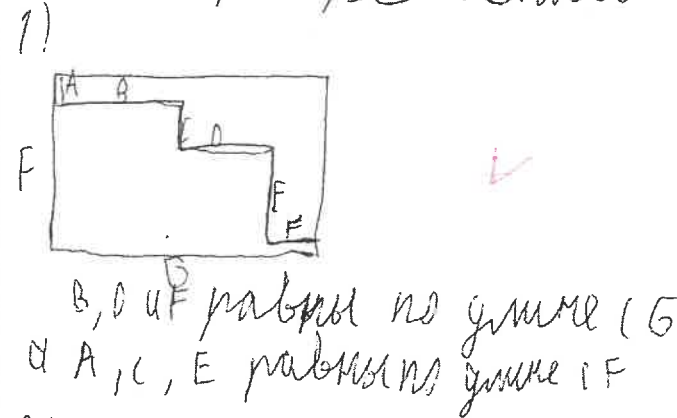 1)
A B
E D
F
F
F
G
B, D и F равны по длине с G
а A, C, E равны по длине с F